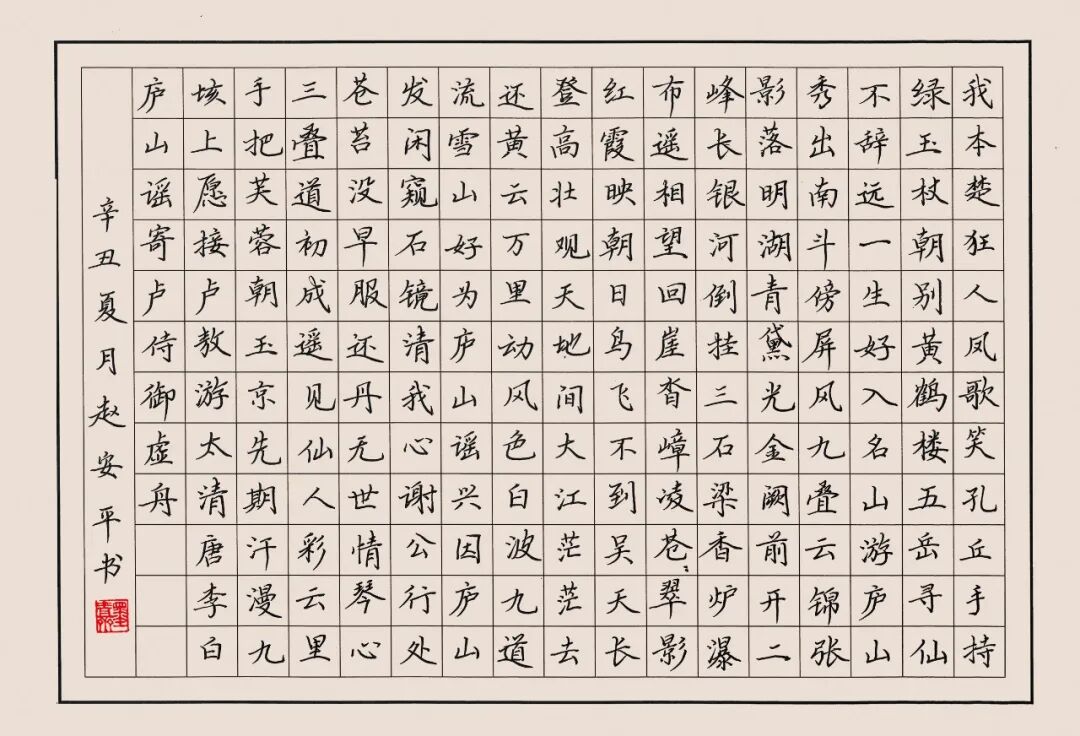 我本楚狂人凤歌笑孔丘手持
绿玉杖朝别黄鹤楼五岳寻仙
不辞远一生好入名山游庐山
秀出南斗傍屏风九叠云锦张
影落明湖青黛光金阙前开二
峰长银河倒挂三石梁香炉瀑
布遥相望回崖沓嶂凌苍〻翠影
红霞映朝日鸟飞不到吴天长
登高壮观天地间大江茫茫去
还黄云万里动风色白波九道
流雪山好为庐山谣兴因庐山
发闲窥石镜清我心谢公行处
苍苔没早服还丹无世情琴心
三叠道初成遥见仙人彩云里
手把芙蓉朝玉京先期汗漫九
垓上愿接卢敖游太清唐李白
庐山谣寄卢侍御虚舟
辛丑夏月赵安平书